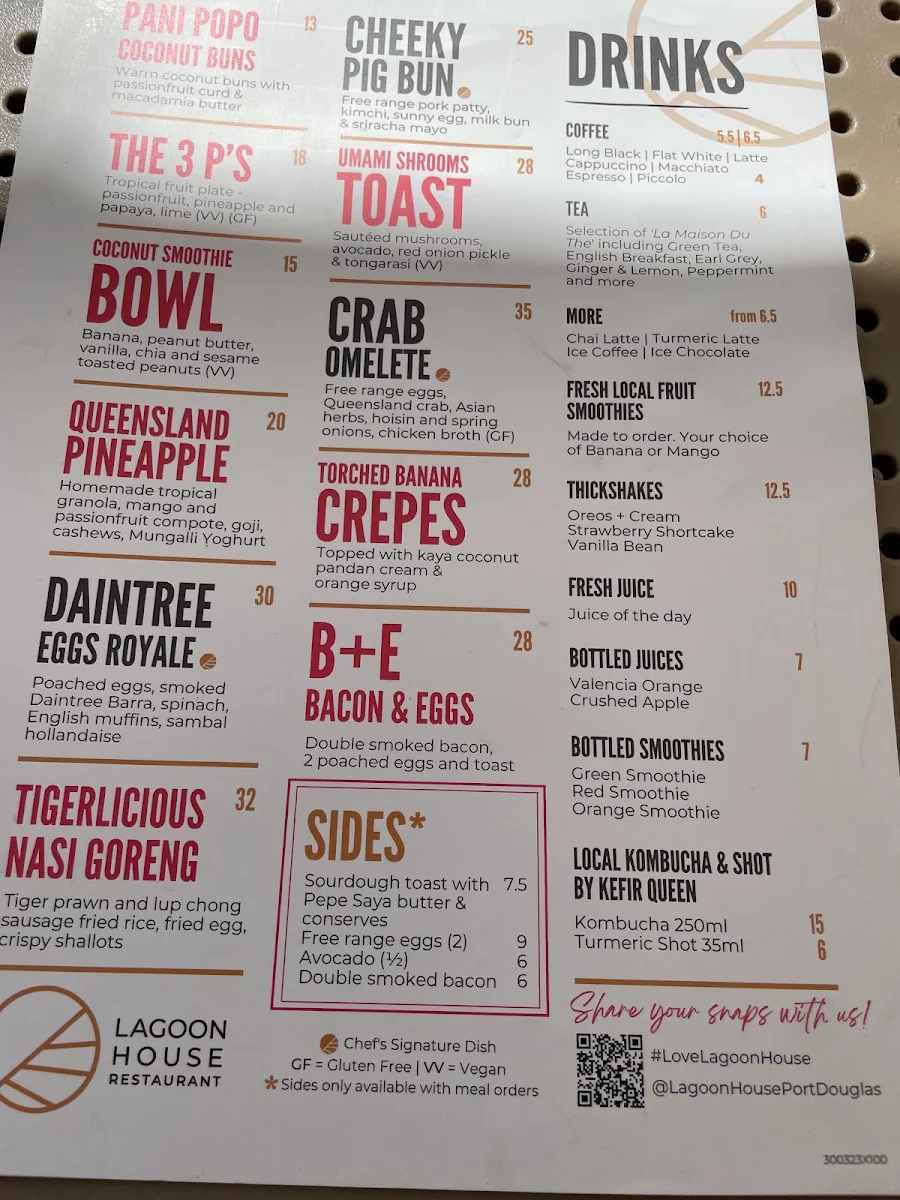 PANI POPO 13
COCONUT BUNS
Warm coconut buns with
passionfruit curd &
macadamia butter
THE 3 P'S 18
Tropical fruit plate -
passionfruit, pineapple and
papaya, lime (VV) (GF)
COCONUT SMOOTHIE 15
BOWL
Banana, peanut butter,
vanilla, chia and sesame
toasted peanuts (VV)
QUEENSLAND 20
PINEAPPLE
Homemade tropical
granola, mango and
passionfruit compote, goji,
cashews, Mungalli Yoghurt
DAINTREE 30
EGGS ROYALE
Poached eggs, smoked
Daintree Barra, spinach,
English muffins, sambal
hollandaise
TIGERLICIOUS 32
NASI GORENG
Tiger prawn and lup chong
sausage fried rice, fried egg,
crispy shallots
LAGOON
HOUSE
RESTAURANT
CHEEKY 25
PIG BUN
Free range pork patty,
kimchi, sunny egg, milk bun
& sriracha mayo
UMAMI SHROOMS 28
TOAST
Sautéed mushrooms,
avocado, red onion pickle
& tongarasi (VV)
CRAB 35
OMELETE
Free range eggs,
Queensland crab, Asian
herbs, hoisin and spring
onions, chicken broth (GF)
TORCHED BANANA 28
CREPES
Topped with kaya coconut
pandan cream &
orange syrup
B+E 28
BACON & EGGS
Double smoked bacon,
2 poached eggs and toast
SIDES*
Sourdough toast with 7.5
Pepe Saya butter &
conserves
Free range eggs (2) 9
Avocado (½) 6
Double smoked bacon 6
Chef's Signature Dish
GF = Gluten Free | VV = Vegan
* Sides only available with meal orders
DRINKS
COFFEE 5.5 | 6.5
Long Black | Flat White | Latte
Cappuccino | Macchiato
Espresso | Piccolo 4
TEA 6
Selection of 'La Maison Du
The' including Green Tea,
English Breakfast, Earl Grey,
Ginger & Lemon, Peppermint
and more
MORE from 6.5
Chai Latte | Turmeric Latte
Ice Coffee | Ice Chocolate
FRESH LOCAL FRUIT 12.5
SMOOTHIES
Made to order. Your choice
of Banana or Mango
THICKSHAKES 12.5
Oreos + Cream
Strawberry Shortcake
Vanilla Bean
FRESH JUICE 10
Juice of the day
BOTTLED JUICES 7
Valencia Orange
Crushed Apple
BOTTLED SMOOTHIES 7
Green Smoothie
Red Smoothie
Orange Smoothie
LOCAL KOMBUCHA & SHOT
BY KEFIR QUEEN
Kombucha 250ml 15
Turmeric Shot 35ml 6
Share your snaps with us!
#LoveLagoonHouse
@LagoonHousePortDouglas
300323X100